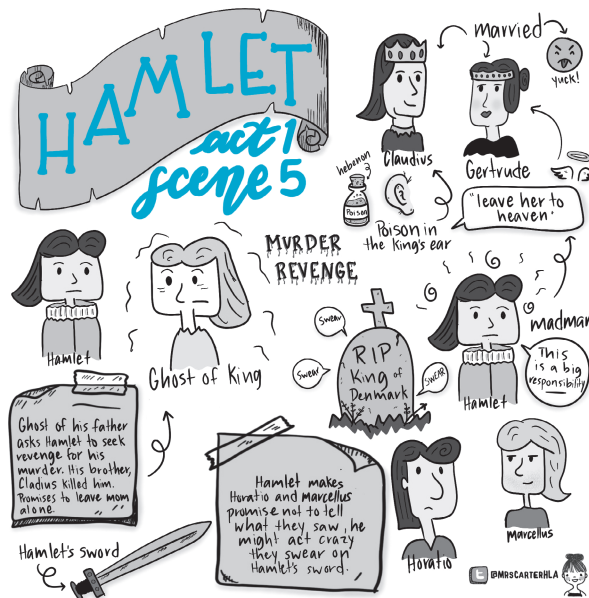 HAMLET
act 1
scene 5
married
yuck!
Claudius
Gertrude
hebenon
Poison
Poison in
the King's ear
"leave her to
heaven"
MURDER
REVENGE
Hamlet
Ghost of King
Swear
Swear
SWEAR
RIP
King of
Denmark
madman
This
is a big
responsibility
Hamlet
Ghost of his father
asks Hamlet to seek
revenge for his
murder. His brother,
Cladius killed him.
Promises to leave mom
alone.
Hamlet makes
Horatio and marcellus
promise not to tell
what they saw, he
might act crazy
they swear on
Hamlet's sword.
Hamlet's sword
Horatio
marcellus
@MRSCARTERHLA